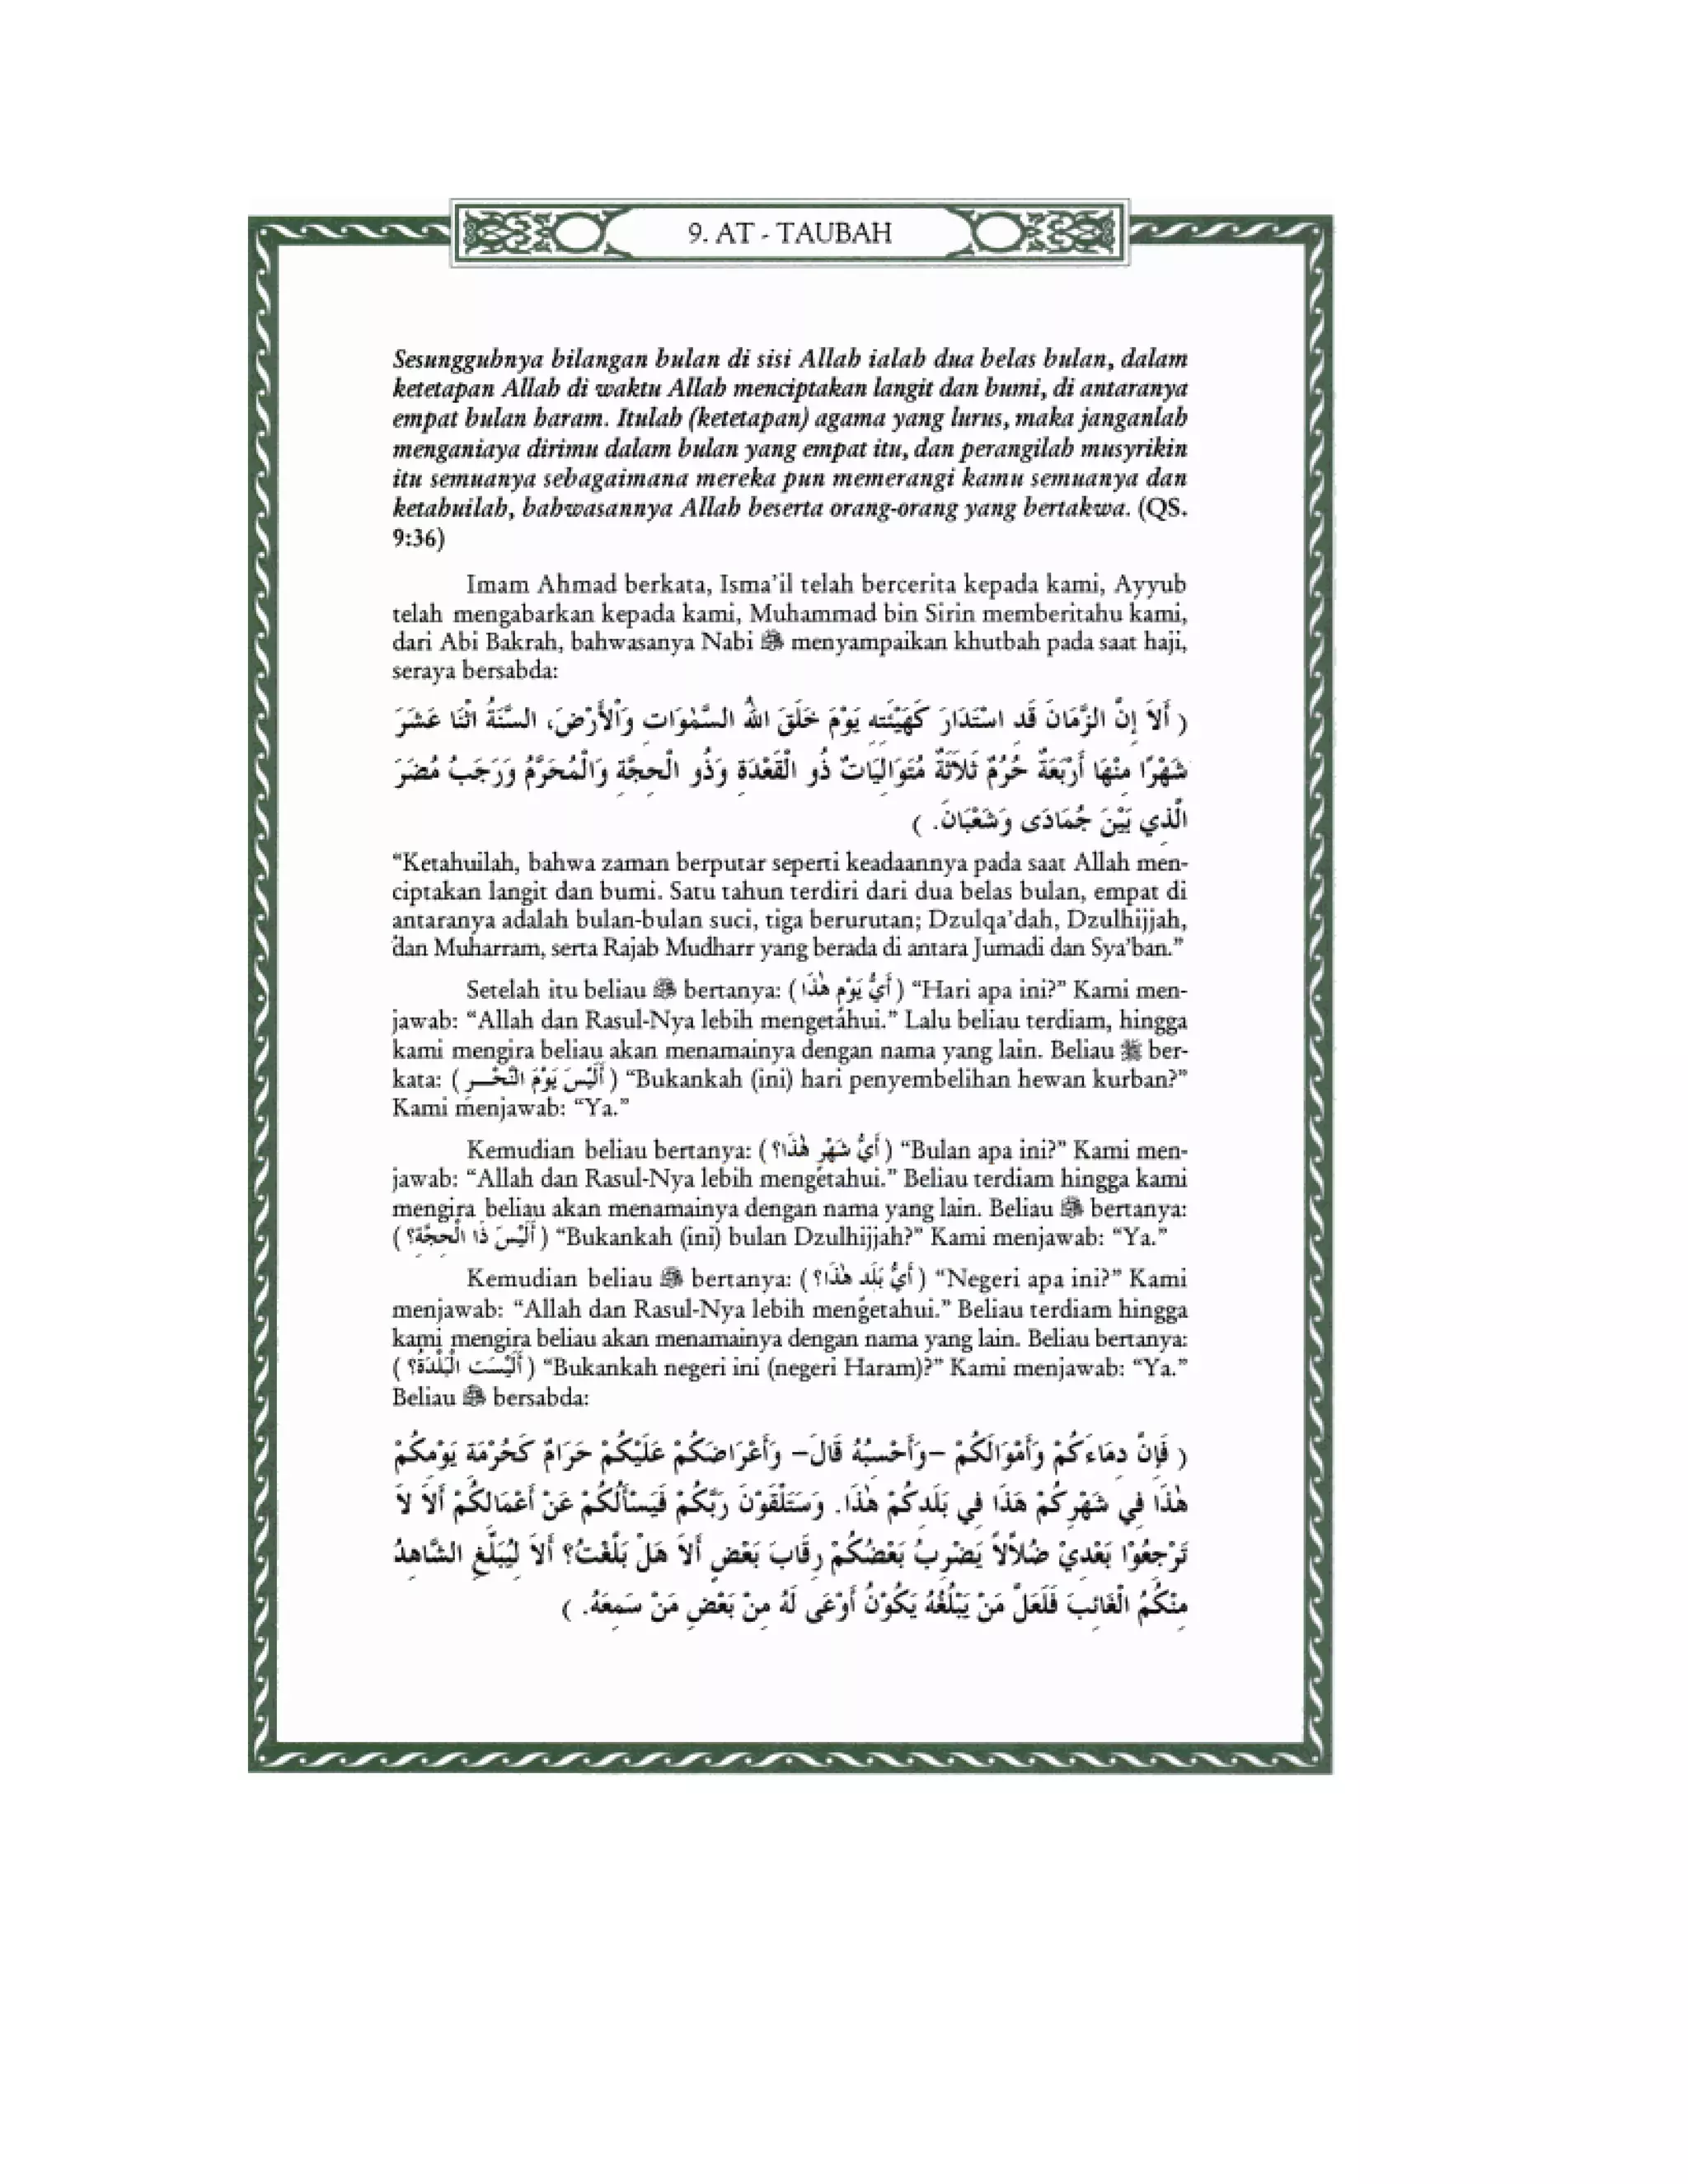 9. AT - TAUBAH
Sesungguhnya bilangan bulan di sisi Allah ialah dua belas bulan, dalam
ketetapan Allah di waktu Allah menciptakan langit dan bumi, di antaranya
empat bulan haram. Itulah (ketetapan) agama yang lurus, maka janganlah
menganiaya dirimu dalam bulan yang empat itu, dan perangilah musyrikin
itu semuanya sebagaimana mereka pun memerangi kamu semuanya dan
ketahuilah, bahwasannya Allah beserta orang-orang yang bertakwa. (QS.
9:36)
Imam Ahmad berkata, Isma'il telah bercerita kepada kami, Ayyub
telah mengabarkan kepada kami, Muhammad bin Sirin memberitahu kami,
dari Abi Bakrah, bahwasanya Nabi ﷺ menyampaikan khutbah pada saat haji,
seraya bersabda:
( أَلاَ إِنَّ الزَّمَانَ قَدِ اسْتَدَارَ كَهَيْئَتِهِ يَوْمَ خَلَقَ اللهُ السَّمٰوَاتِ وَاْلأَرْضَ، السَّنَةُ اثْنَا عَشَرَ
شَهْرًا مِنْهَا أَرْبَعَةٌ حُرُمٌ ثَلاَثَةٌ مُتَوَالِيَاتٌ ذُو الْقَعْدَةِ وَذُو الْحِجَّةِ وَالْمُحَرَّمُ وَرَجَبُ مُضَرَ
الَّذِي بَيْنَ جُمَادَى وَشَعْبَانَ. )
“Ketahuilah, bahwa zaman berputar seperti keadaannya pada saat Allah men-
ciptakan langit dan bumi. Satu tahun terdiri dari dua belas bulan, empat di
antaranya adalah bulan-bulan suci, tiga berurutan; Dzulqa'dah, Dzulhijjah,
dan Muharram, serta Rajab Mudharr yang berada di antara Jumadi dan Sya'ban.”
Setelah itu beliau ﷺ bertanya: ( أَيُّ يَوْمٍ هٰذَا ) “Hari apa ini?” Kami men-
jawab: “Allah dan Rasul-Nya lebih mengetahui.” Lalu beliau terdiam, hingga
kami mengira beliau akan menamainya dengan nama yang lain. Beliau ﷺ ber-
kata: ( أَلَيْسَ يَوْمَ النَّحْــرِ ) “Bukankah (ini) hari penyembelihan hewan kurban?”
Kami menjawab: “Ya.”
Kemudian beliau bertanya: ( أَيُّ شَهْرٍ هٰذَا؟ ) “Bulan apa ini?” Kami men-
jawab: “Allah dan Rasul-Nya lebih mengetahui.” Beliau terdiam hingga kami
mengira beliau akan menamainya dengan nama yang lain. Beliau ﷺ bertanya:
( أَلَيْسَ ذَا الْحِجَّةِ؟ ) “Bukankah (ini) bulan Dzulhijjah?” Kami menjawab: “Ya.”
Kemudian beliau ﷺ bertanya: ( أَيُّ بَلَدٍ هٰذَا؟ ) “Negeri apa ini?” Kami
menjawab: “Allah dan Rasul-Nya lebih mengetahui.” Beliau terdiam hingga
kami mengira beliau akan menamainya dengan nama yang lain. Beliau bertanya:
( أَلَيْسَتِ الْبَلْدَةُ؟ ) “Bukankah negeri ini (negeri Haram)?” Kami menjawab: “Ya.”
Beliau ﷺ bersabda:
( فَإِنَّ دِمَاءَكُمْ وَأَمْوَالَكُمْ -وَأَحْسِبُهُ قَالَ- وَأَعْرَاضَكُمْ عَلَيْكُمْ حَرَامٌ كَحُرْمَةِ يَوْمِكُمْ
هٰذَا فِي شَهْرِكُمْ هَذَا فِي بَلَدِكُمْ هٰذَا. وَسَتَلْقَوْنَ رَبَّكُمْ فَيَسْأَلُكُمْ عَنْ أَعْمَالِكُمْ أَلاَ لاَ
تَرْجِعُوْا بَعْدِيْ ضُلاَّلاً يَضْرِبُ بَعْضُكُمْ رِقَابَ بَعْضٍ أَلاَ هَلْ بَلَّغْتُ؟ أَلاَ لِيُبَلِّغِ الشَّاهِدُ
مِنْكُمُ الْغَائِبَ فَلَعَلَّ مَنْ يَبْلُغُهُ يَكُوْنُ أَوْعَى لَهُ مِنْ بَعْضِ مَنْ سَمِعَهُ. )